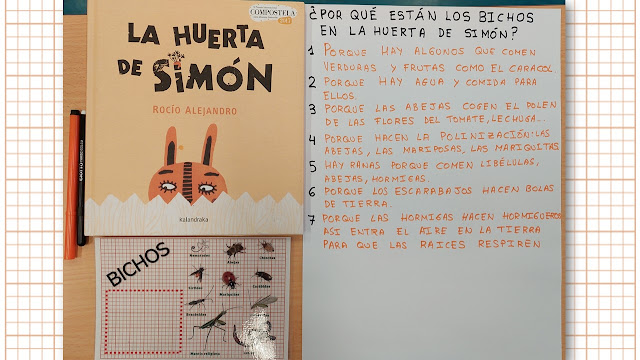 COMPOSTELA
LA HUERTA
DE SIMÓN
ROCÍO ALEJANDRO
kalandraka
BICHOS
Nematodos
Abejas
Mariquitas
Mantis religiosa
¿POR QUÉ ESTÁN LOS BICHOS
EN LA HUERTA DE SIMÓN?
1 PORQUE HAY ALGUNOS QUE COMEN
VERDURAS Y FRUTAS COMO EL CARACOL.
2 PORQUE HAY AGUA Y COMIDA PARA
ELLOS.
3 PORQUE LAS ABEJAS COGEN EL POLEN
DE LAS FLORES DEL TOMATE, LECHUGA...
4 PORQUE HACEN LA POLINIZACIÓN: LAS
ABEJAS, LAS MARIPOSAS, LAS MARIQUITAS
5 HAY RANAS PORQUE COMEN LIBÉLULAS,
ABEJAS, HORMIGAS.
6 PORQUE LOS ESCARABAJOS HACEN BOLAS
DE TIERRA.
7 PORQUE LAS HORMIGAS HACEN HORMIGUEROS
ASI ENTRA EL AIRE EN LA TIERRA
PARA QUE LAS RAICES RESPIREN